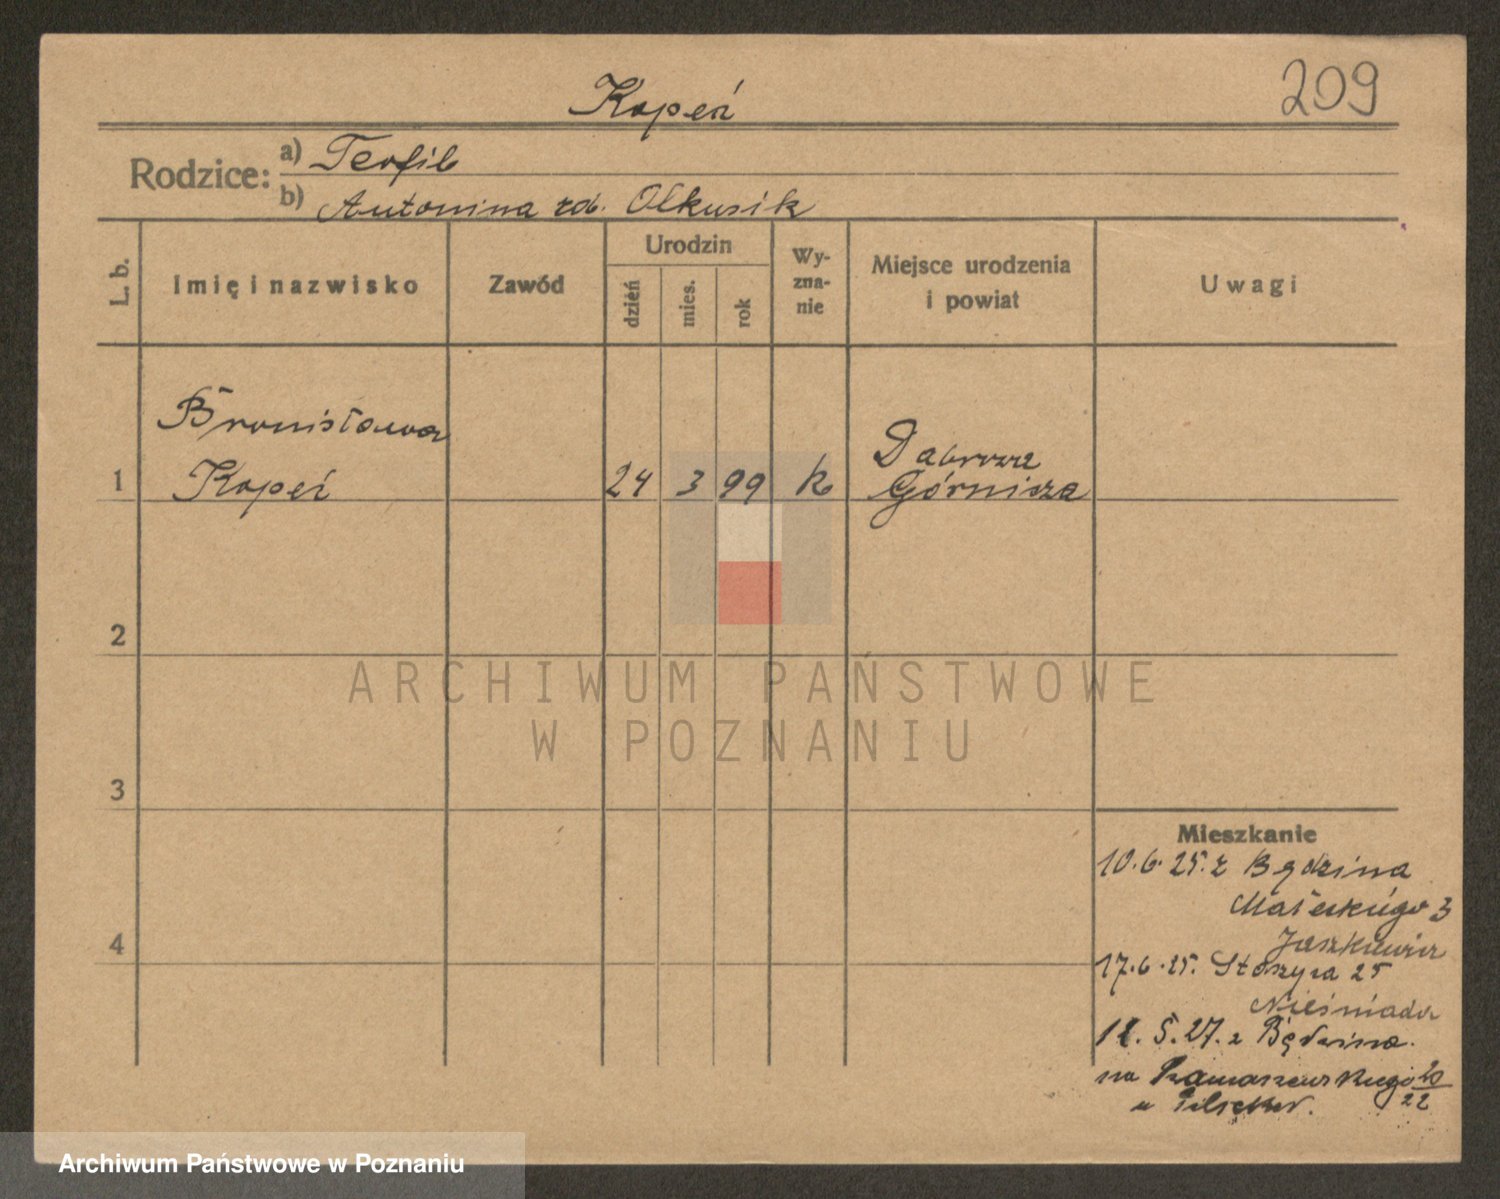 Kopeć
209
Rodzice: a) Teofil
b) Antonina zd. Olkusik
L. b.
Imię i nazwisko
Zawód
Urodzin
dzień
mies.
rok
Wy-
zna-
nie
Miejsce urodzenia
i powiat
Uwagi
Bronisława
1 Kopeć 24 3 99 k
Dąbrowa
Górnicza
2
3
4
Mieszkanie
10.6.25. z Będzina
Małeckiego 3
Jaszkiewicz
17.6.25. Stoszyca 25
Nieśniada
12.5.27. z Będzina.
na 20/22
u
ARCHIWUM PAŃSTWOWE
W POZNANIU
Archiwum Państwowe w Poznaniu